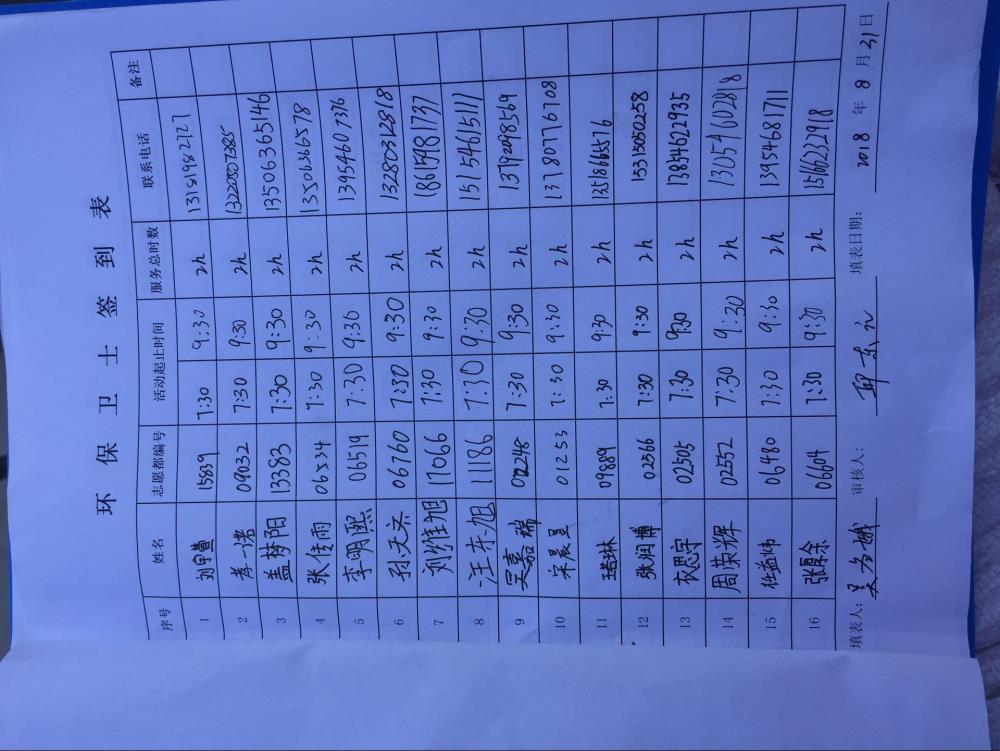 环保卫士签到表
序号 姓名 志愿都编号 活动起止时间 服务总时数 联系电话 备注
1 刘宇萱 15839 7:30 9:30 2h 13151982727
2 孝一诺 09032 7:30 9:30 2h 13220807385
3 盖梦阳 13383 7:30 9:30 2h 13506365146
4 张佳雨 06534 7:30 9:30 2h 13506366578
5 李明熙 06519 7:30 9:30 2h 13954607376
6 孙文齐 06760 7:30 9:30 2h 13280312818
7 刘维旭 17066 7:30 9:30 2h 18615181737
8 汪东旭 11186 7:30 9:30 2h 15154615111
9 吴嘉瑞 02248 7:30 9:30 2h 13792098569
10 宋晨呈 01253 7:30 9:30 2h 13780776708
11 09889 7:30 9:30 2h 13518666576
12 张润博 02566 7:30 9:30 2h 15315050258
13 农思宇 02505 7:30 9:30 2h 13854622935
14 周荣辉 02552 7:30 9:30 2h 13054602818
15 任益炜 06480 7:30 9:30 2h 13954681711
16 张景余 06604 7:30 9:30 2h 15166232918
填表人: 审核人: 填表日期: 2018 年 8 月 31 日